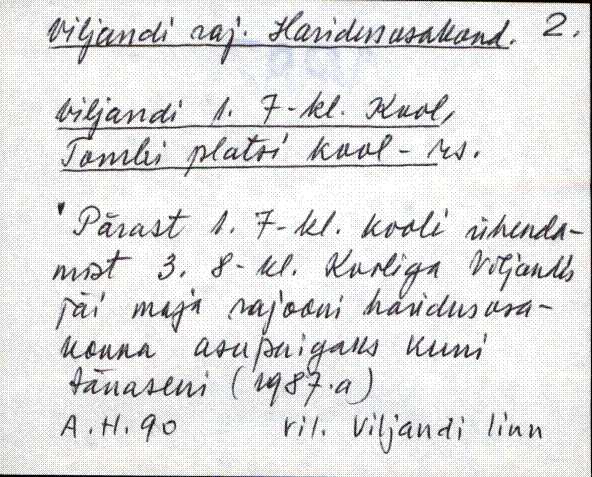 Viljandi raj. Haridusosakond. 2.
Viljandi 1. 7-kl. Kool,
Tombi platsi kool - rs.
Pärast 1. 7-kl. kooli ühenda-
mist 3. 8-kl. Kooliga Viljandis
jäi maja rajooni haridusosa-
konna asupaigaks kuni
tänaseni (1987.a)
A.H. 90 ril. Viljandi linn